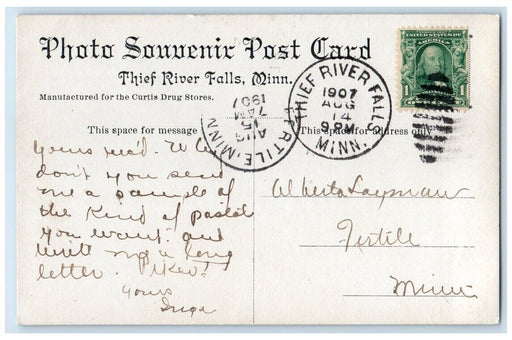 Photo Souvenir Post Card
Thief River Falls, Minn.
Manufactured for the Curtis Drug Stores.
This space for message
This space for address only
THIEF RIVER FALLS
1907
AUG
14
9 PM
MINN.
FERTILE, MINN.
AUG
15
7 AM
1907
1
Yours rec'd. Why
don't you send
me a sample of
the kind of postal
you want and
write me a long
letter.
Yours
Inga
Alberta Layman
Fertile
Minn